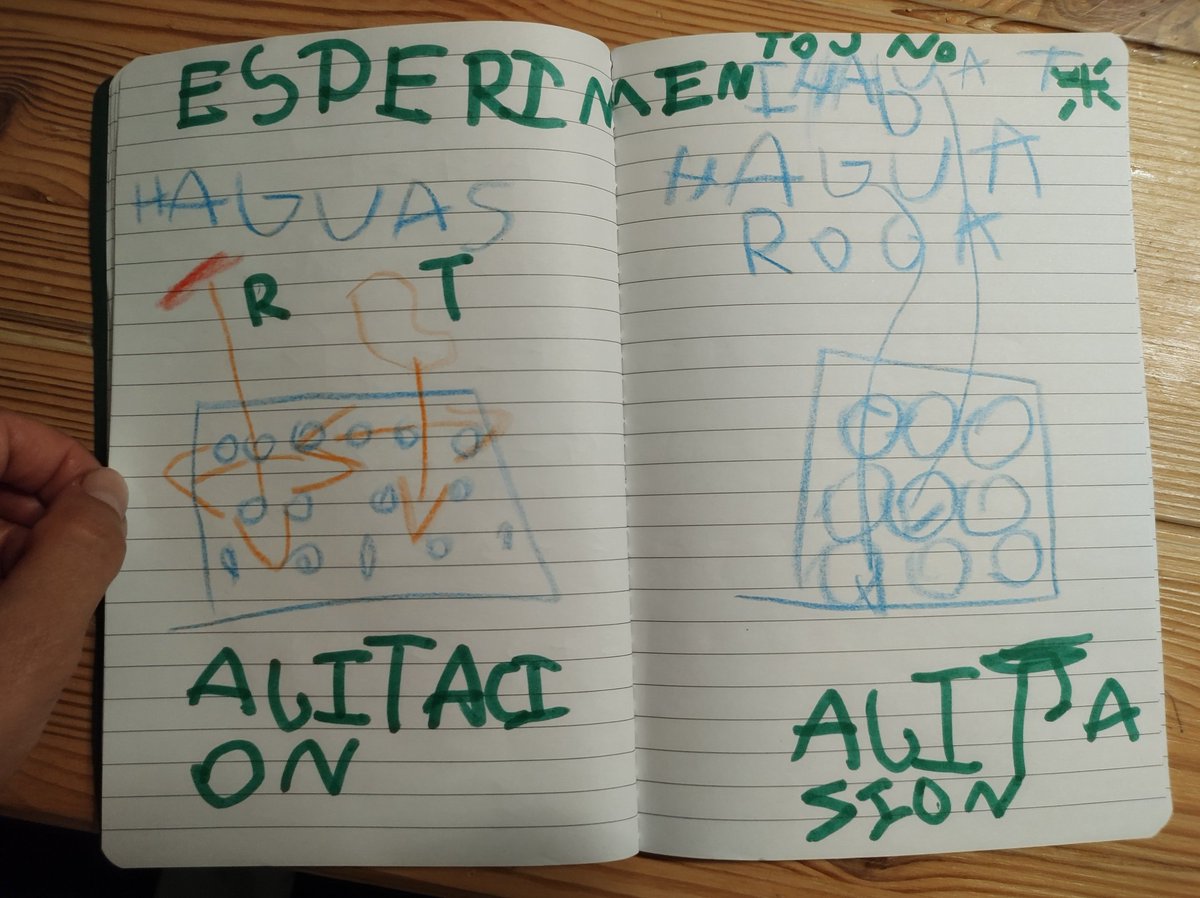 ESPERIMEN
TOJ NO
HAGUAS
R T
AGITACI
ON
HAGUA
ROGA
AGITA
SION